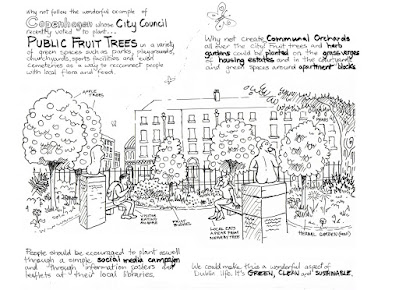 Why not follow the wonderful example of
Copenhagen whose City Council
recently voted to plant...
PUBLIC FRUIT TREES in a variety
of green spaces such as parks, playgrounds,
churchyards, sports facilities and even
cemeteries as a way to reconnect people
with local flora and food.
Why not create Communal Orchards
all over the City! Fruit trees and herb
gardens could be planted on the grass verges
of housing estates and in the courtyards
and green spaces around apartment blocks
APPLE
TREES
VISITOR
EATING
AN APPLE
FRUIT
LOCAL EATS
A PEAR FROM
NEARBY TREE
HERBAL GARDEN
People should be encouraged to plant as well
through a simple social media campaign
and through information posters and
leaflets at their local libraries.
We could make this a wonderful aspect of
Dublin life. It's GREEN, CLEAN and SUSTAINABLE.